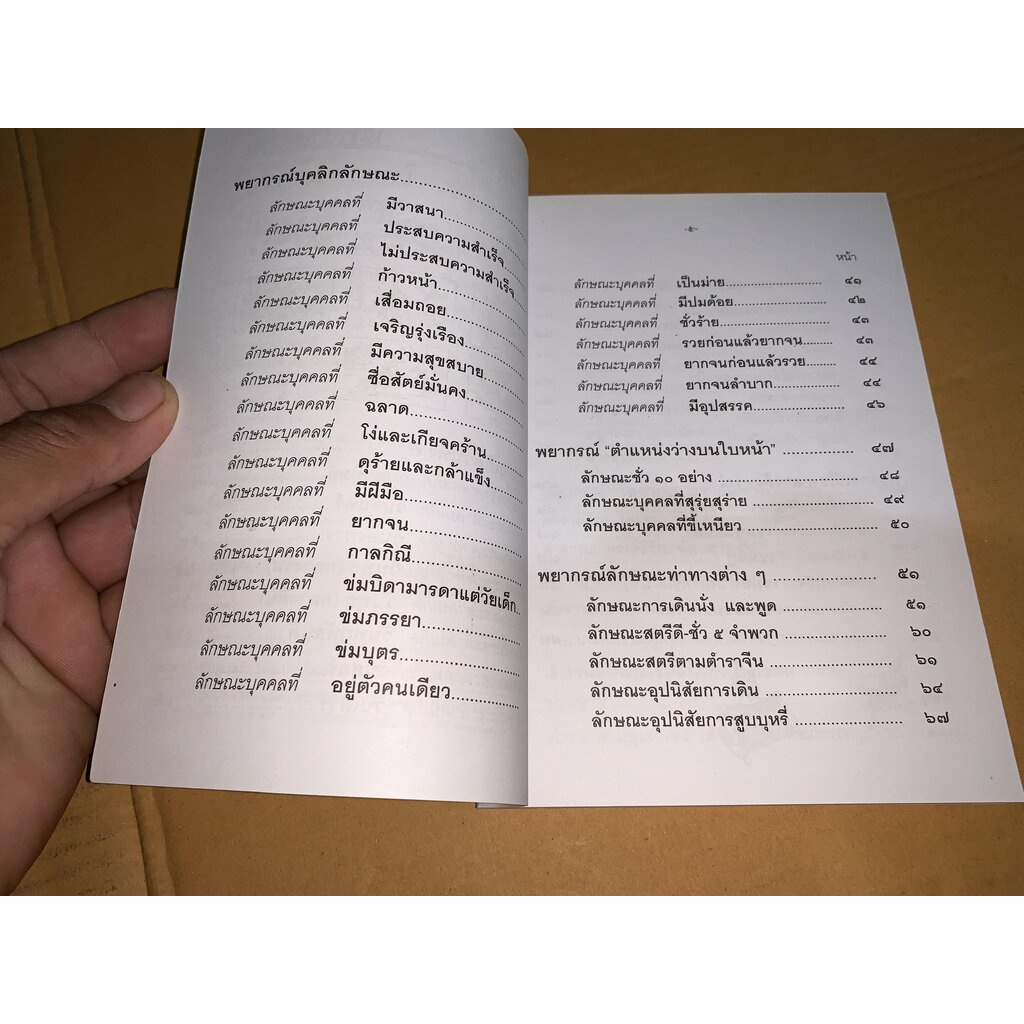 พยากรณ์บุคลิกลักษณะ........................
ลักษณะบุคคลที่ มีวาสนา................
ลักษณะบุคคลที่ ประสบความสำเร็จ....
ลักษณะบุคคลที่ ไม่ประสบความสำเร็จ.
ลักษณะบุคคลที่ ก้าวหน้า................
ลักษณะบุคคลที่ เสื่อมถอย..............
ลักษณะบุคคลที่ เจริญรุ่งเรือง...........
ลักษณะบุคคลที่ มีความสุขสบาย........
ลักษณะบุคคลที่ ซื่อสัตย์มั่นคง...........
ลักษณะบุคคลที่ ฉลาด......................
ลักษณะบุคคลที่ โง่และเกียจคร้าน.......
ลักษณะบุคคลที่ ดุร้ายและกล้าแข็ง......
ลักษณะบุคคลที่ มีฝีมือ.....................
ลักษณะบุคคลที่ ยากจน....................
ลักษณะบุคคลที่ กาลกิณี...................
ลักษณะบุคคลที่ ข่มบิดามารดาแต่วัยเด็ก..
ลักษณะบุคคลที่ ข่มภรรยา................
ลักษณะบุคคลที่ ข่มบุตร....................
ลักษณะบุคคลที่ อยู่ตัวคนเดียว............
หน้า
ลักษณะบุคคลที่ เป็นม่าย........................ ๔๑
ลักษณะบุคคลที่ มีปมด้อย....................... ๔๒
ลักษณะบุคคลที่ ชั่วร้าย........................... ๔๓
ลักษณะบุคคลที่ รวยก่อนแล้วยากจน........ ๔๓
ลักษณะบุคคลที่ ยากจนก่อนแล้วรวย........ ๔๔
ลักษณะบุคคลที่ ยากจนลำบาก................ ๔๔
ลักษณะบุคคลที่ มีอุปสรรค...................... ๔๖
พยากรณ์ “ตำแหน่งว่างบนใบหน้า” ................. ๔๗
ลักษณะชั่ว ๑๐ อย่าง ..................................... ๔๘
ลักษณะบุคคลที่สุรุ่ยสุร่าย .............................. ๔๙
ลักษณะบุคคลที่ขี้เหนียว ................................ ๕๐
พยากรณ์ลักษณะท่าทางต่าง ๆ ........................ ๕๑
ลักษณะการเดินนั่ง และพูด ....................... ๕๑
ลักษณะสตรีดี-ชั่ว ๕ จำพวก ....................... ๖๐
ลักษณะสตรีตามตำราจีน ............................ ๖๑
ลักษณะอุปนิสัยการเดิน ............................. ๖๔
ลักษณะอุปนิสัยการสูบบุหรี่ ........................ ๖๗